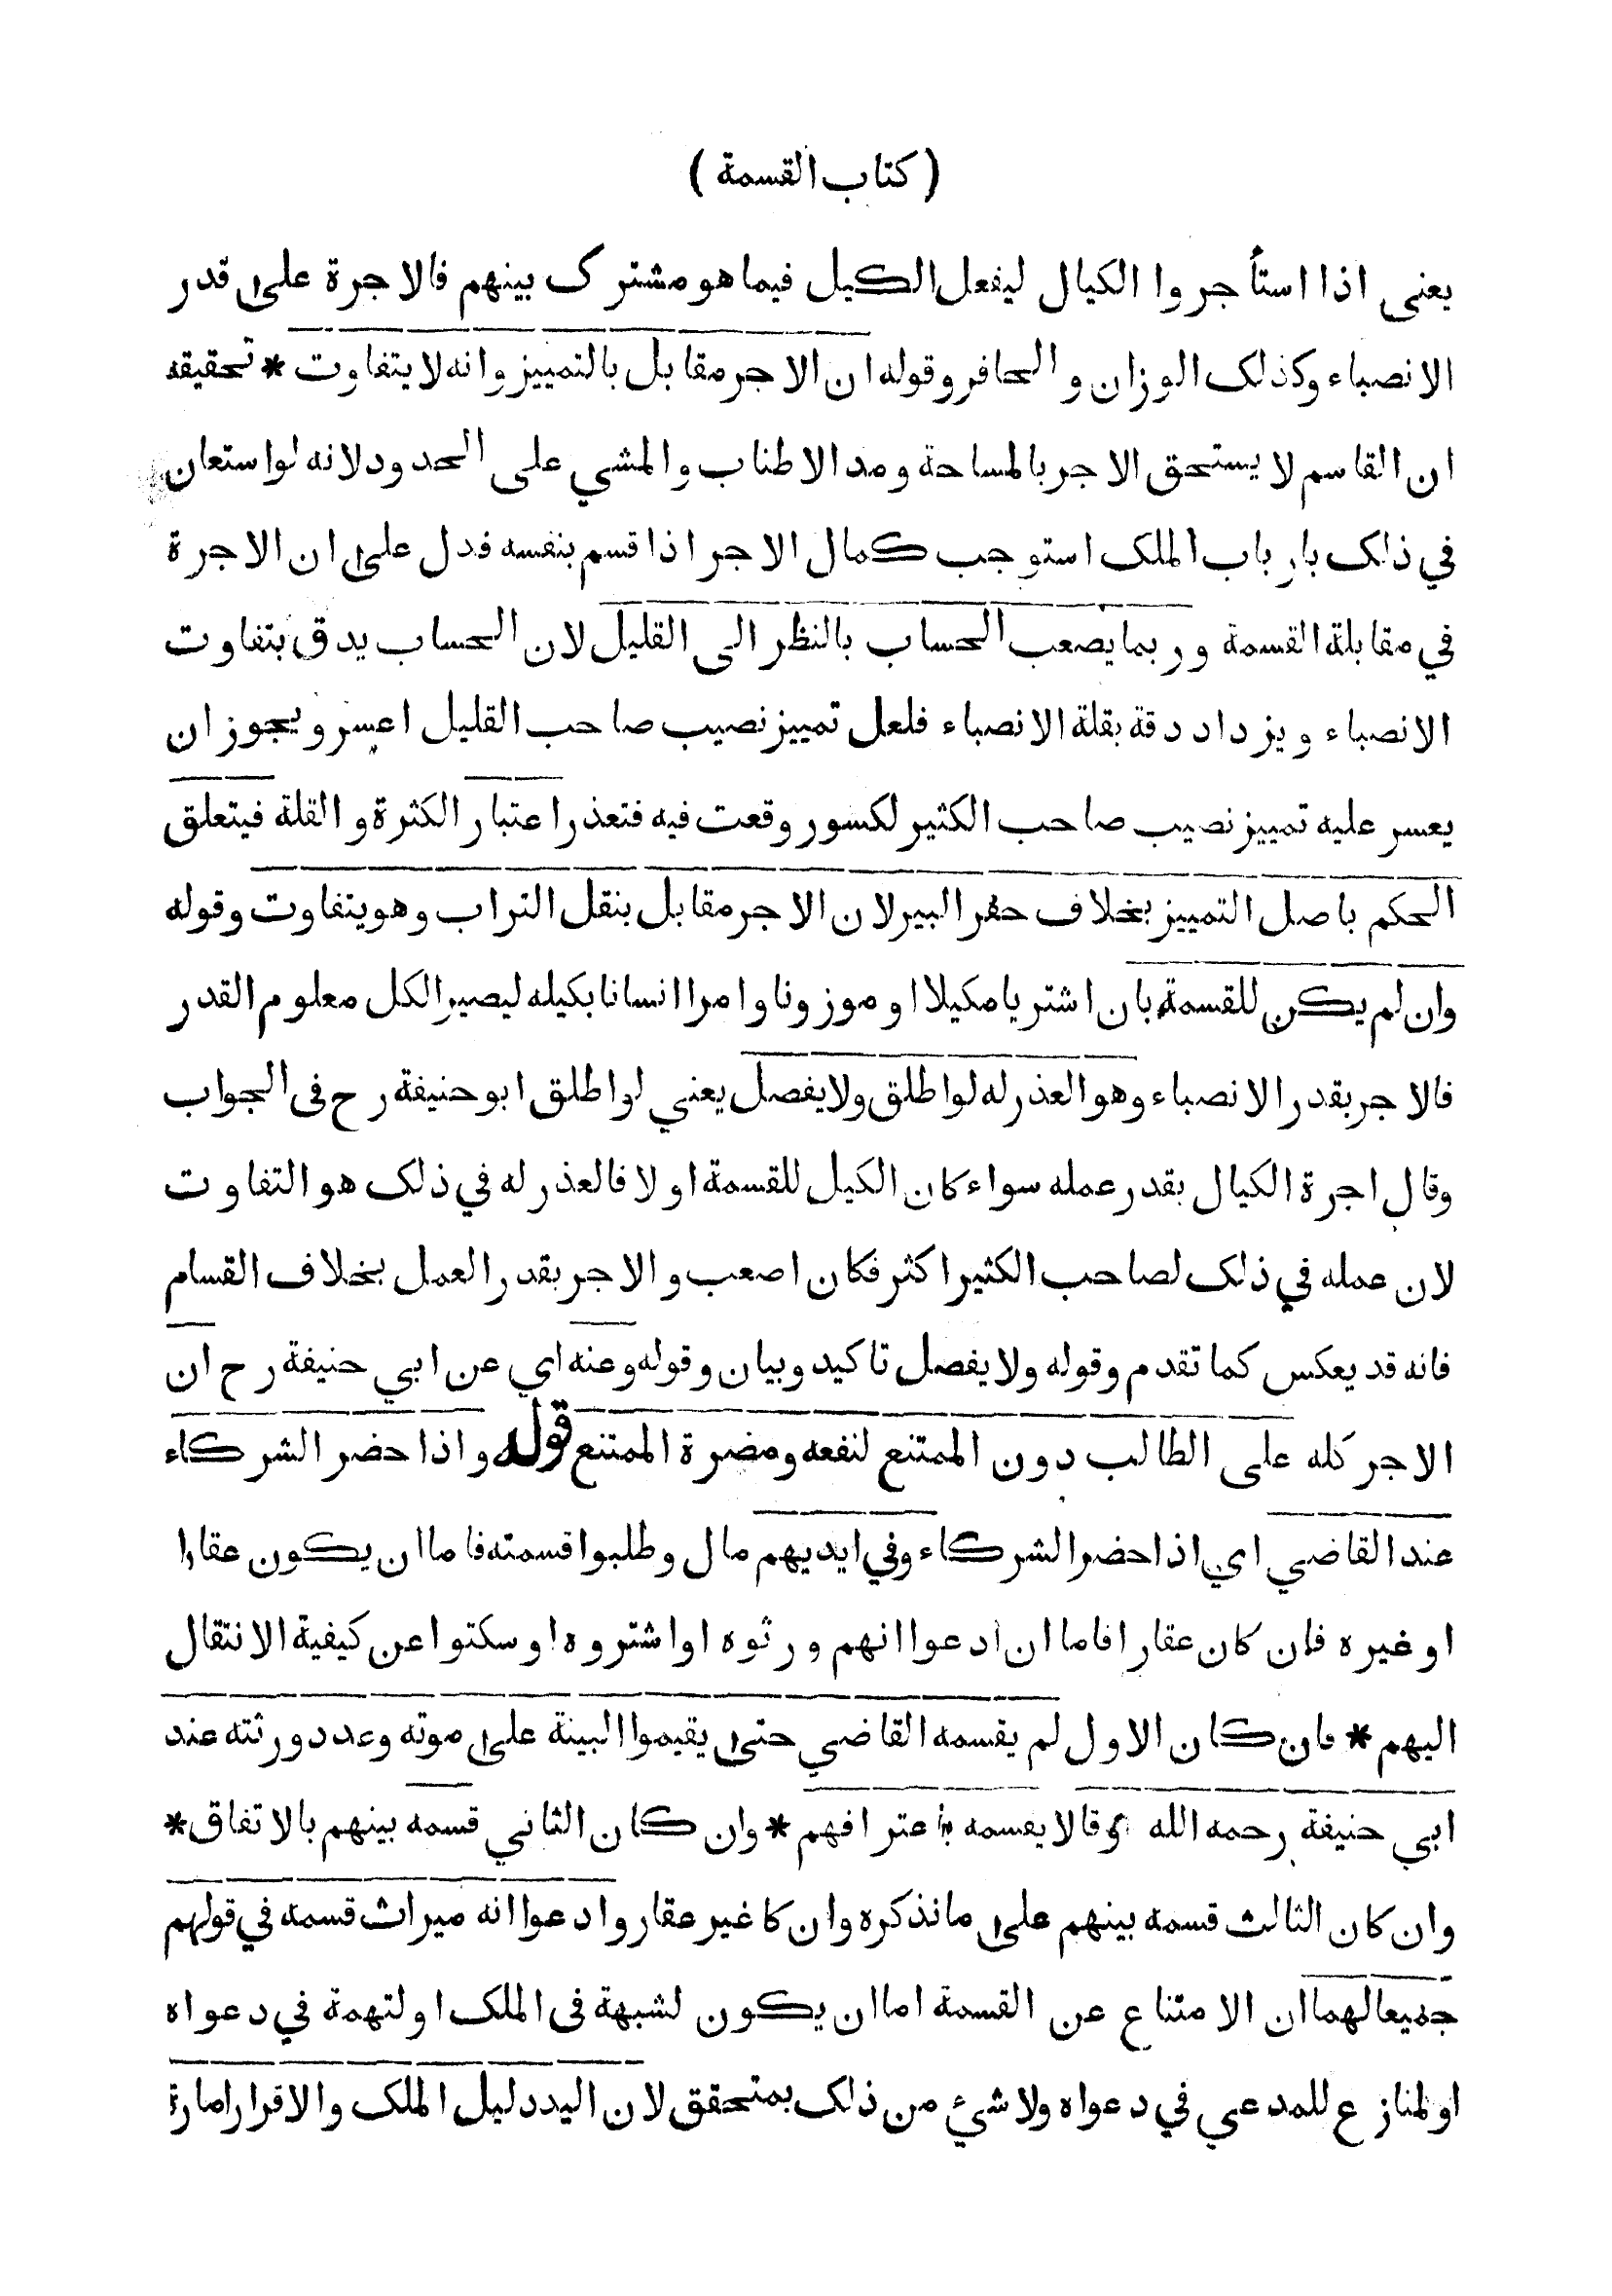 ( كتاب القسمة )
يعنى اذا استأجروا الكيال ليفعل الكيل فيما هو مشترك بينهم فالاجرة على قدر
الانصباء وكذلك الوزان والحافر وقوله ان الاجر مقابل بالتمييز وانه لا يتفاوت * تحقيقه
ان القاسم لا يستحق الاجر بالمساحة ومد الاطناب والمشي على الحدود لانه لو استعان
في ذلك بارباب الملك استوجب كمال الاجر اذا قسم بنفسه فدل على ان الاجرة
في مقابلة القسمة وربما يصعب الحساب بالنظر الى القليل لان الحساب يدق بتفاوت
الانصباء ويزداد دقة بقلة الانصباء فلعل تمييز نصيب صاحب القليل اعسر ويجوز ان
يعسر عليه تمييز نصيب صاحب الكثير لكسور وقعت فيه فتعذر اعتبار الكثرة والقلة فيتعلق
الحكم باصل التمييز بخلاف حفر البير لان الاجر مقابل بنقل التراب وهو يتفاوت وقوله
وان لم يكن للقسمة بان اشتريا مكيلا او موزونا وامرا انسانا بكيله ليصير الكل معلوم القدر
فالاجر بقدر الانصباء وهو العذر له لو اطلق ولا يفصل يعني لو اطلق ابو حنيفة رح فى الجواب
وقال اجرة الكيال بقدر عمله سواء كان الكيل للقسمة او لا فالعذر له في ذلك هو التفاوت
لان عمله في ذلك لصاحب الكثير اكثر فكان اصعب والاجر بقدر العمل بخلاف القسام
فانه قد يعكس كما تقدم وقوله ولا يفصل تاكيد وبيان وقوله وعنه اي عن ابي حنيفة رح ان
الاجر كله على الطالب دون الممتنع لنفعه ومضرة الممتنع قوله واذا حضر الشركاء
عند القاضي اي اذا حضر الشركاء وفي ايديهم مال وطلبوا قسمته فاما ان يكون عقارا
او غيره فان كان عقارا فاما ان ادعوا انهم ورثوه او اشتروه او سكتوا عن كيفية الانتقال
اليهم * فان كان الاول لم يقسمه القاضي حتى يقيموا البينة على موته وعدد ورثته عند
ابي حنيفة رحمه الله وقالا يقسمه باعترافهم * وان كان الثاني قسمه بينهم بالاتفاق *
وان كان الثالث قسمه بينهم على ما نذكره وان كا غير عقار وادعوا انه ميراث قسمه في قولهم
جميعا لهما ان الامتناع عن القسمة اما ان يكون لشبهة فى الملك او لتهمة في دعواه
او لمنازع للمدعي في دعواه ولا شئ من ذلك بمتحقق لان اليد دليل الملك والاقرار امارة